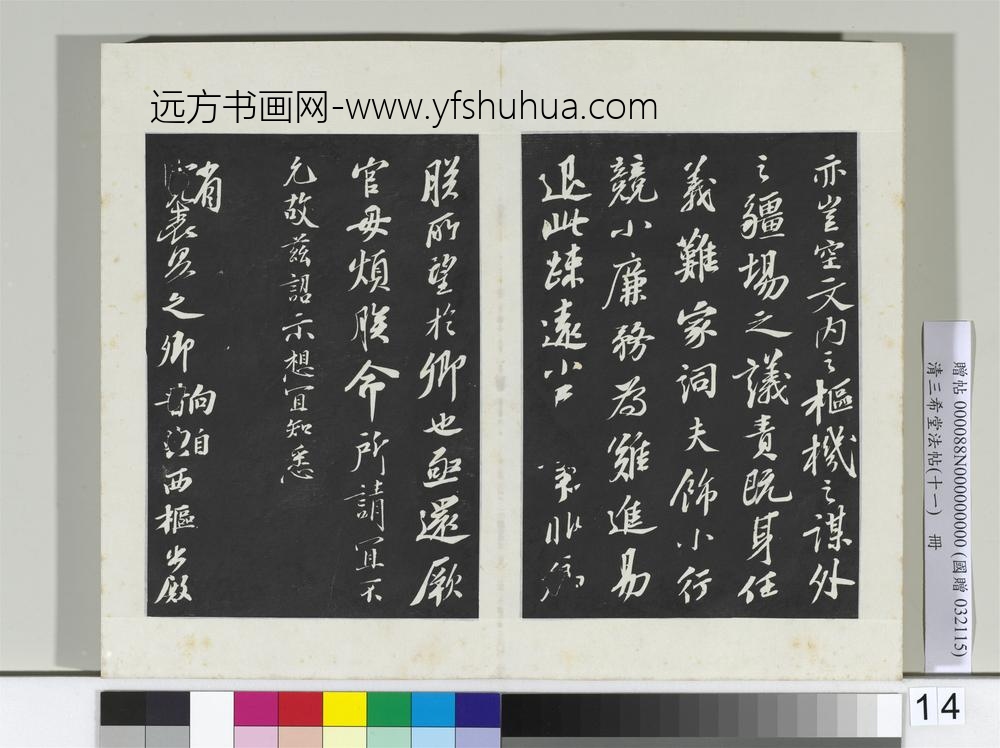 远方书画网-www.yfshuhua.com
亦豈空文内之樞機之謀外
之疆場之議責既身任
義難家詞夫飾小行
競小廉務為難進易
退此踈遠小
非
朕所望於卿也亟還厥
官毋煩朕命所請宜不
允故兹詔示想宜知悉
省
表具之卿向自西樞出殿
贈帖 000088N000000000 (國贈 032115)
清三希堂法帖(十一) 冊
14